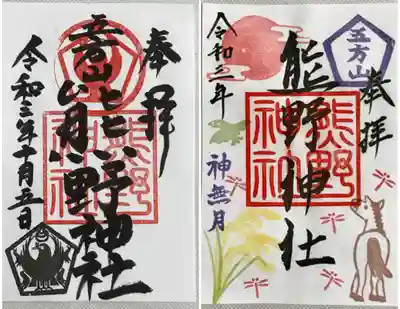 奉拝
五方山熊野神社
熊野神社
令和三年十月五日
五方山
奉拝
熊野神社
熊野神社
令和三年
神無月